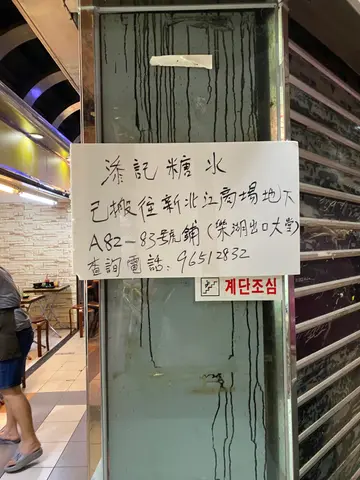 添記糖水
已搬往新北江商場地下
A82-83號鋪(榮湖出口大堂)
查詢電話：96512832
계단조심